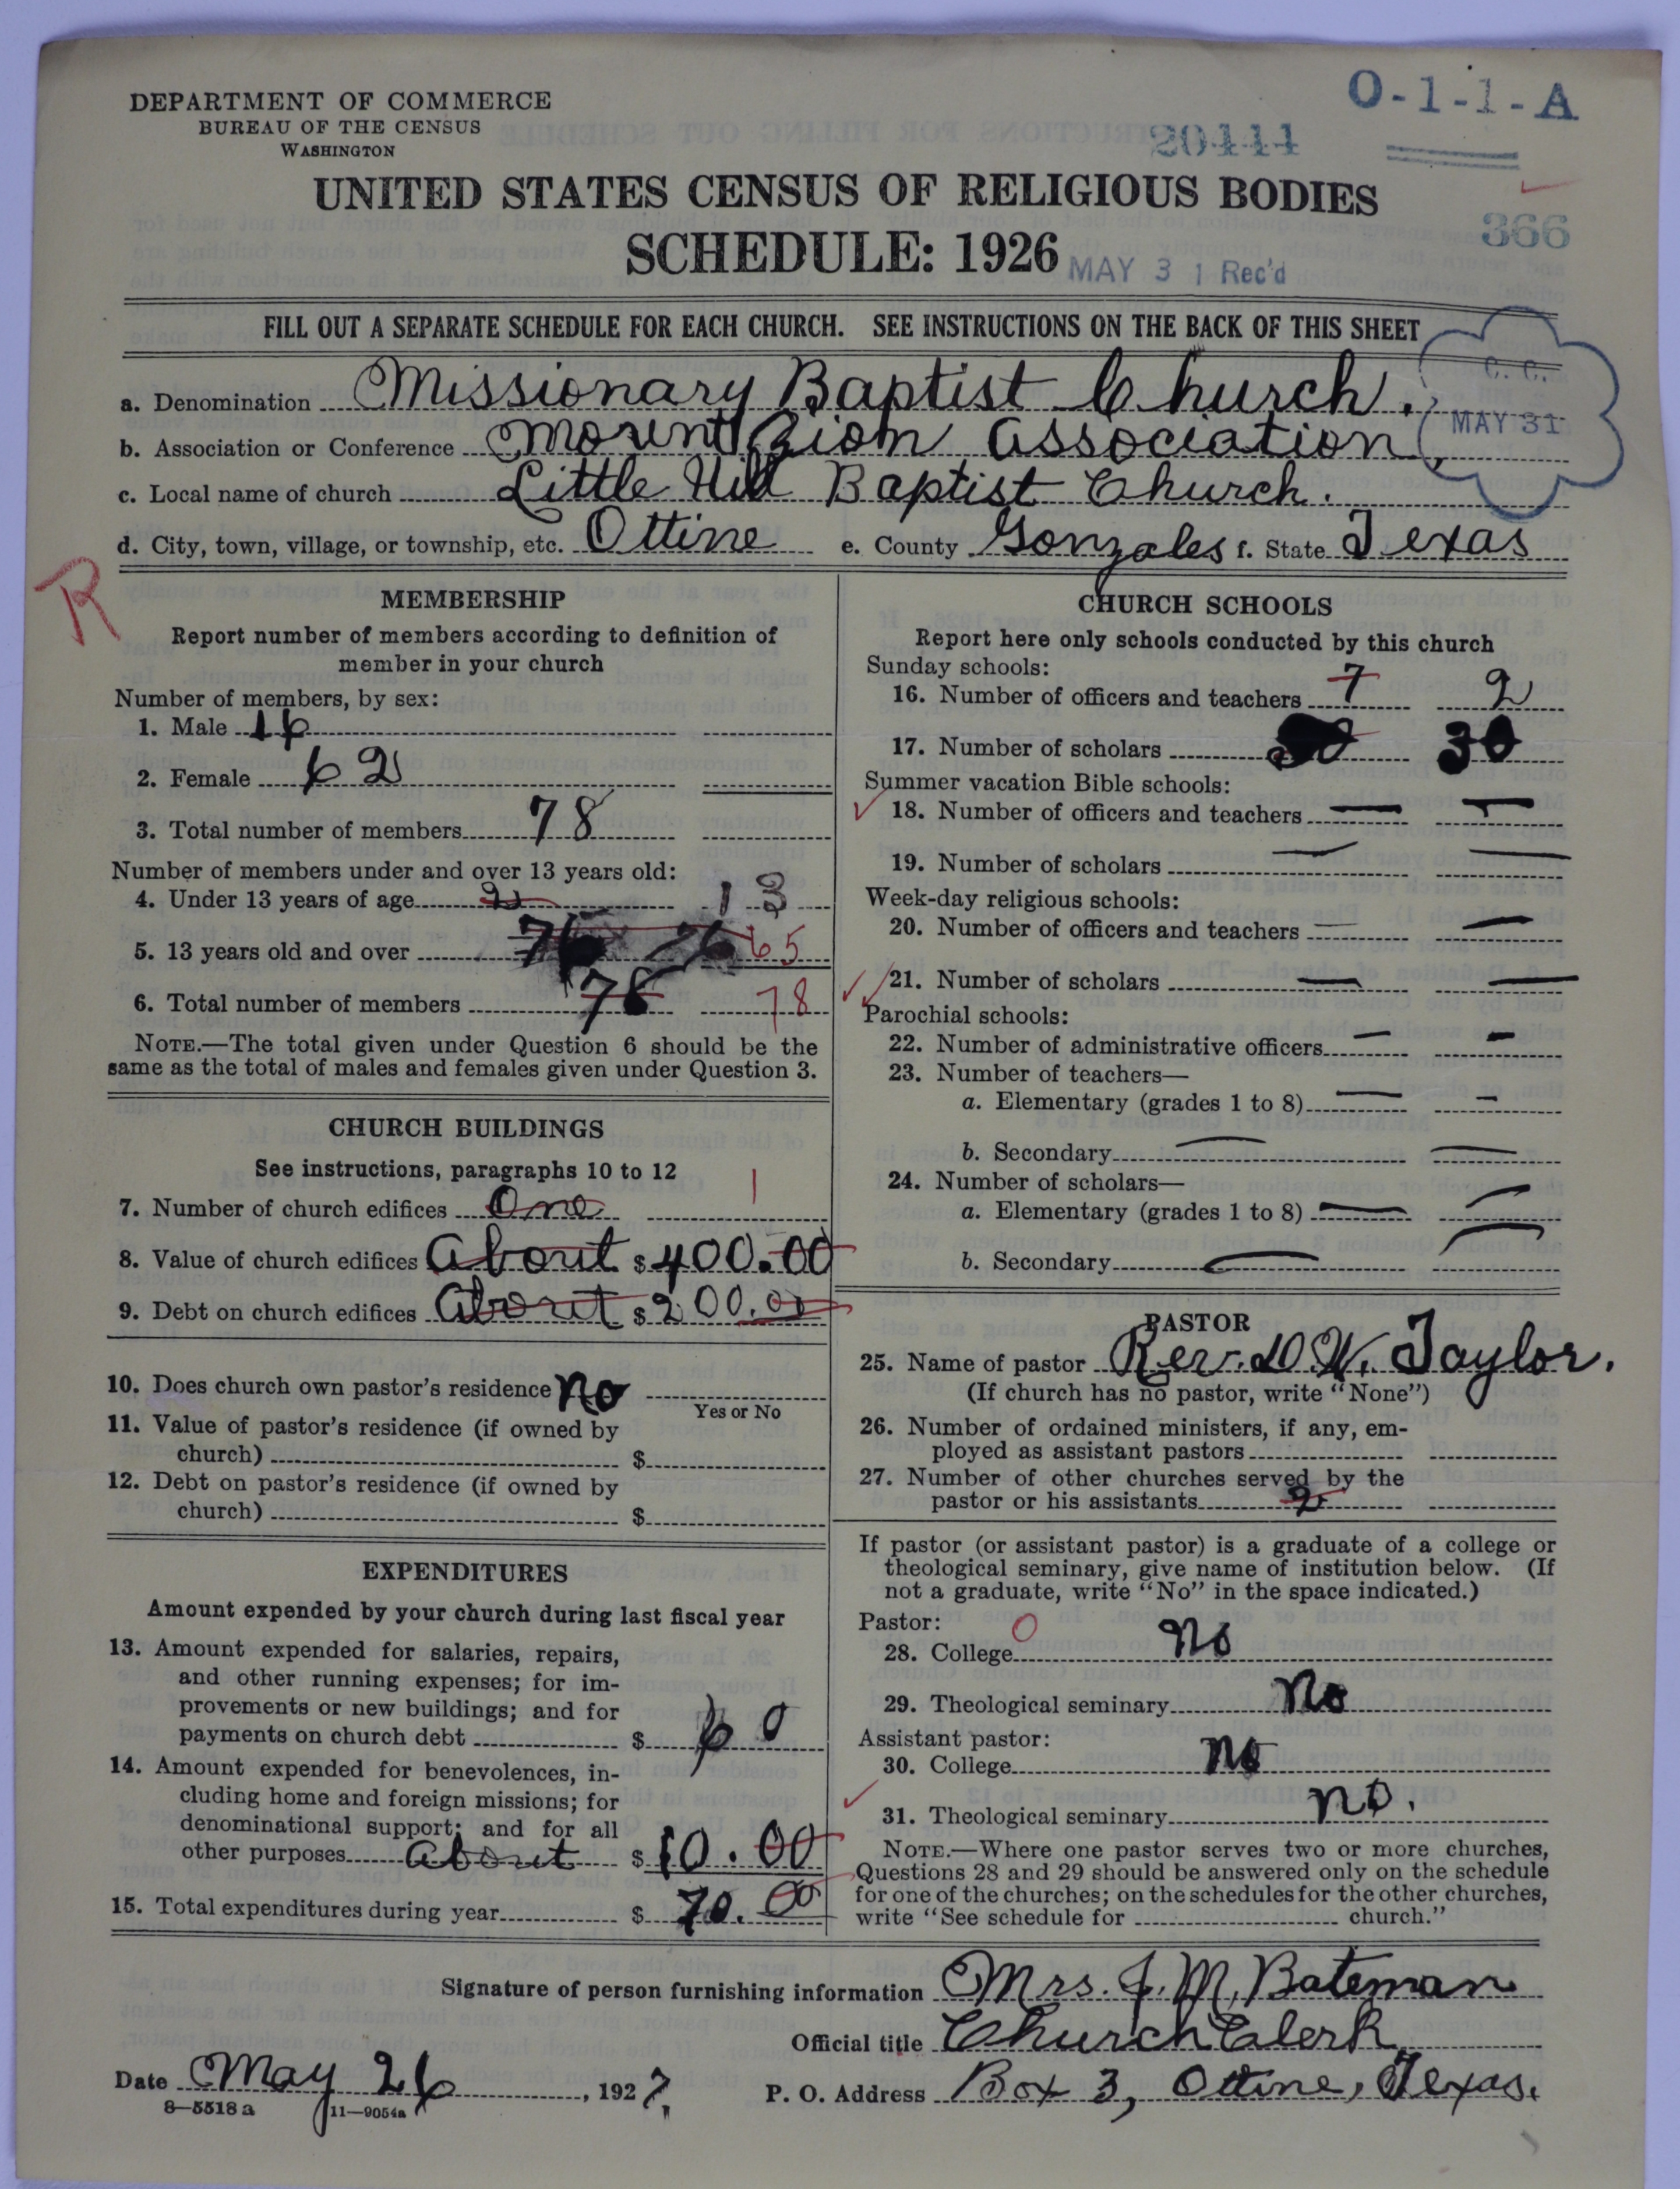 DEPARTMENT OF COMMERCE
BUREAU OF THE CENSUS
WASHINGTON
O-1-1-A
20444
UNITED STATES CENSUS OF RELIGIOUS BODIES
SCHEDULE: 1926
MAY 31 Rec'd
366
FILL OUT A SEPARATE SCHEDULE FOR EACH CHURCH. SEE INSTRUCTIONS ON THE BACK OF THIS SHEET
C. C.
MAY 31
a. Denomination Missionary Baptist Church.
b. Association or Conference Mount Zion Association,
c. Local name of church Little Hill Baptist Church.
d. City, town, village, or township, etc. Ottine e. County Gonzales f. State Texas
R
MEMBERSHIP
Report number of members according to definition of
member in your church
Number of members, by sex:
1. Male 16
2. Female 62
3. Total number of members 78
Number of members under and over 13 years old:
4. Under 13 years of age 2 13
5. 13 years old and over 76 76 65
6. Total number of members 78 78
NOTE.—The total given under Question 6 should be the
same as the total of males and females given under Question 3.
CHURCH BUILDINGS
See instructions, paragraphs 10 to 12
7. Number of church edifices One 1
8. Value of church edifices About $400.00
9. Debt on church edifices About $200.00
10. Does church own pastor's residence No
Yes or No
11. Value of pastor's residence (if owned by
church) $
12. Debt on pastor's residence (if owned by
church) $
EXPENDITURES
Amount expended by your church during last fiscal year
13. Amount expended for salaries, repairs,
and other running expenses; for im-
provements or new buildings; and for
payments on church debt $ 60
14. Amount expended for benevolences, in-
cluding home and foreign missions; for
denominational support; and for all
other purposes About $10.00
15. Total expenditures during year $ 70.00
CHURCH SCHOOLS
Report here only schools conducted by this church
Sunday schools:
16. Number of officers and teachers 7 2
17. Number of scholars 30
Summer vacation Bible schools:
18. Number of officers and teachers — —
19. Number of scholars — —
Week-day religious schools:
20. Number of officers and teachers — —
21. Number of scholars — —
Parochial schools:
22. Number of administrative officers — —
23. Number of teachers—
a. Elementary (grades 1 to 8) — —
b. Secondary — —
24. Number of scholars—
a. Elementary (grades 1 to 8) — —
b. Secondary — —
PASTOR
25. Name of pastor Rev. D. W. Taylor.
(If church has no pastor, write "None")
26. Number of ordained ministers, if any, em-
ployed as assistant pastors
27. Number of other churches served by the
pastor or his assistants 2
If pastor (or assistant pastor) is a graduate of a college or
theological seminary, give name of institution below. (If
not a graduate, write "No" in the space indicated.)
Pastor: 0
28. College No
29. Theological seminary No
Assistant pastor:
30. College No
31. Theological seminary no.
NOTE.—Where one pastor serves two or more churches,
Questions 28 and 29 should be answered only on the schedule
for one of the churches; on the schedules for the other churches,
write "See schedule for church."
Signature of person furnishing information Mrs. J. M. Bateman
Official title Church Clerk
Date May 26, 1927. P. O. Address Box 3, Ottine, Texas.
8—5518a 11—9054a